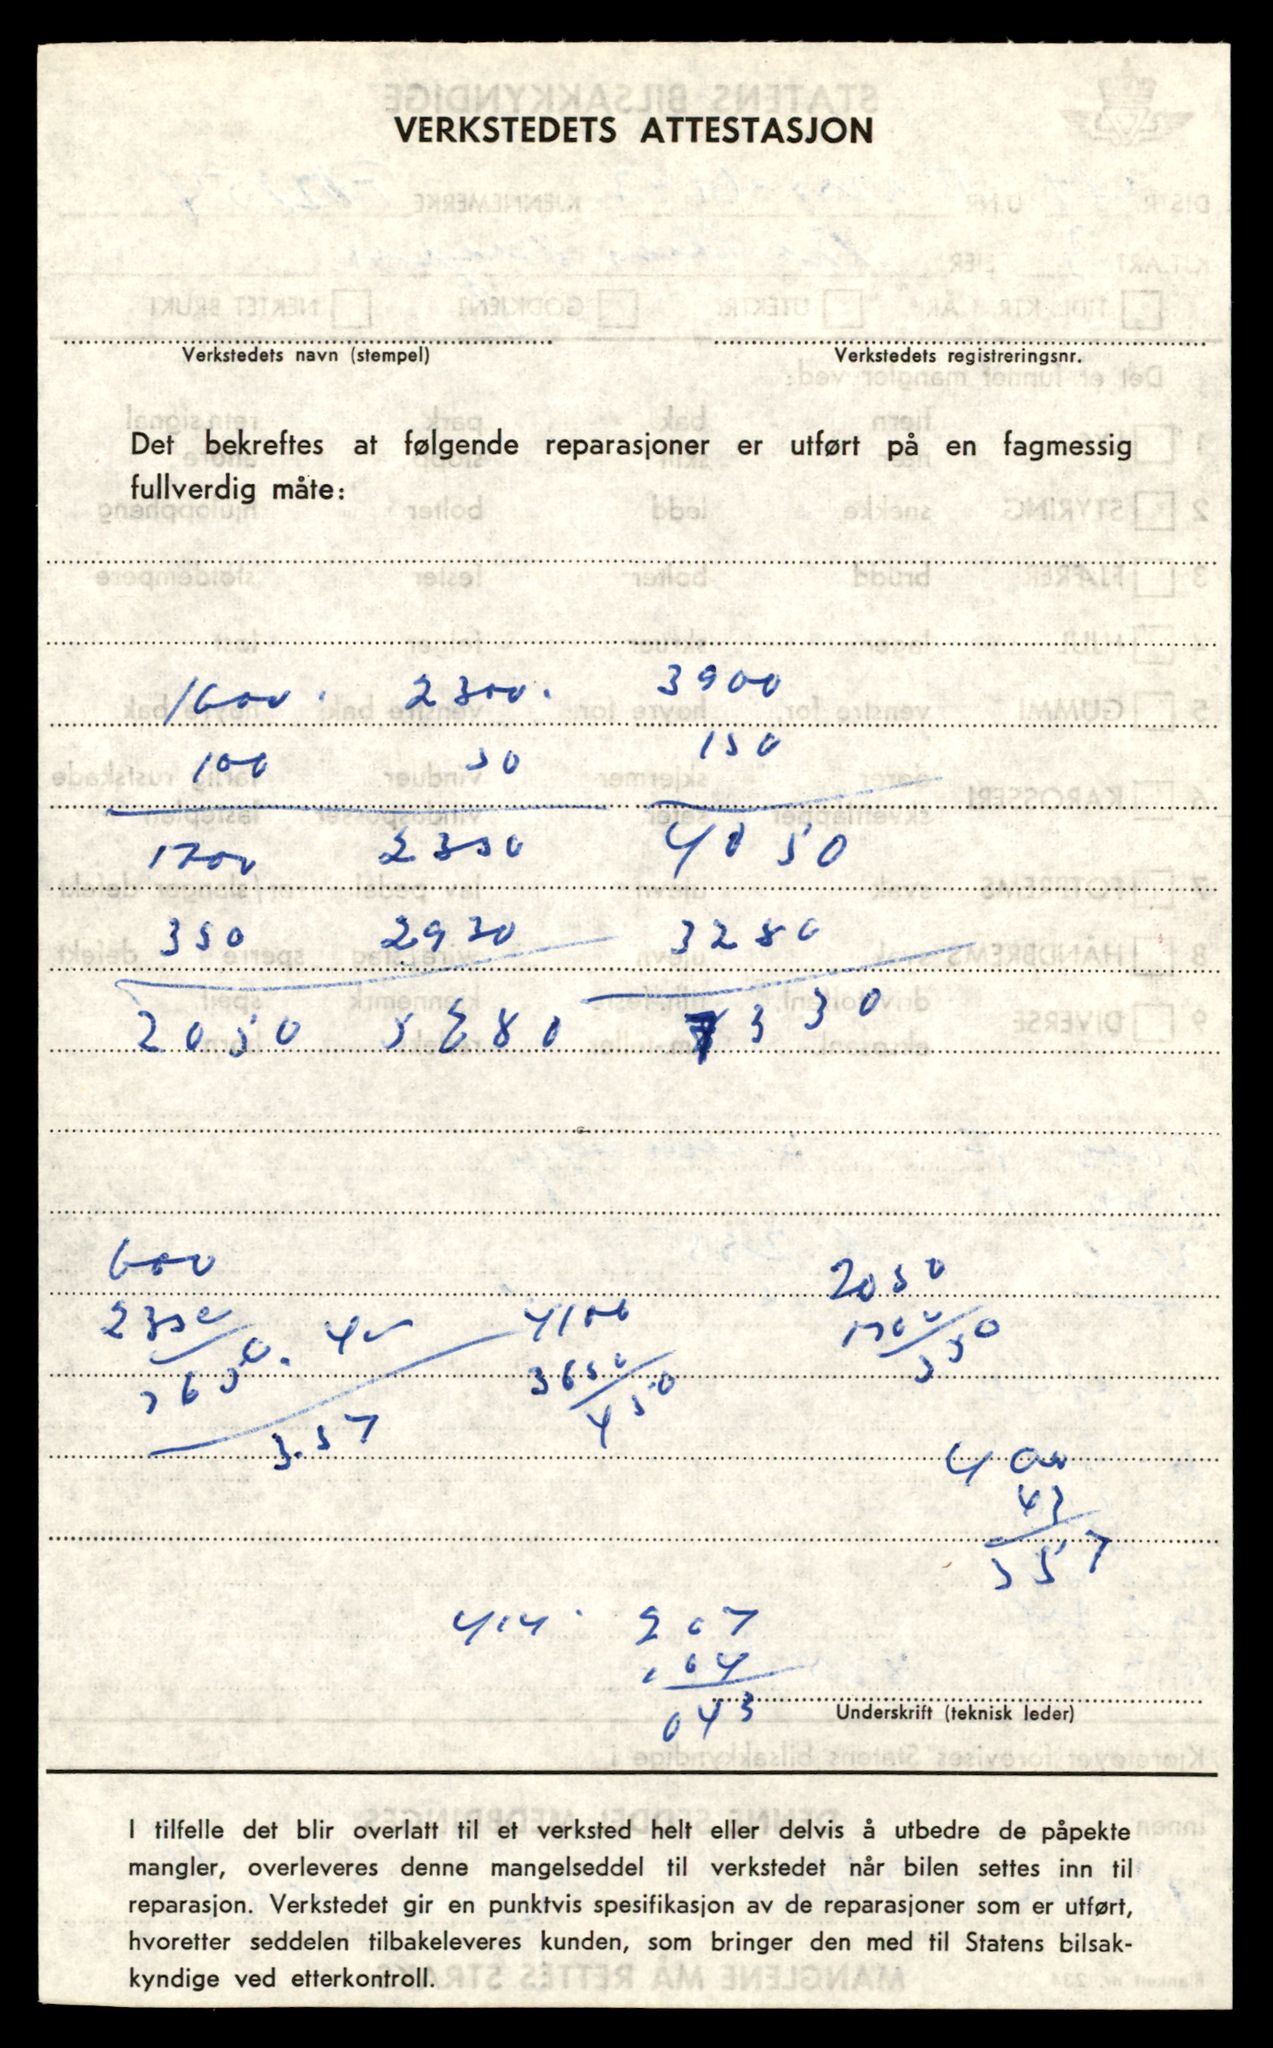 VERKSTEDETS ATTESTASJON
Verkstedets navn (stempel) Verkstedets registreringsnr.
Det bekreftes at følgende reparasjoner er utført på en fagmessig
fullverdig måte:
1600. 2300. 3900
100 50 150
1700 2350 4050
350 2930 3280
2050 5280 7330
600
2350 4100 2050
3650. 45 3650 1700
450 350
3.57
400
43
357
414. 207
164
043
Underskrift (teknisk leder)
I tilfelle det blir overlatt til et verksted helt eller delvis å utbedre de påpekte
mangler, overleveres denne mangelseddel til verkstedet når bilen settes inn til
reparasjon. Verkstedet gir en punktvis spesifikasjon av de reparasjoner som er utført,
hvoretter seddelen tilbakeleveres kunden, som bringer den med til Statens bilsak-
kyndige ved etterkontroll.